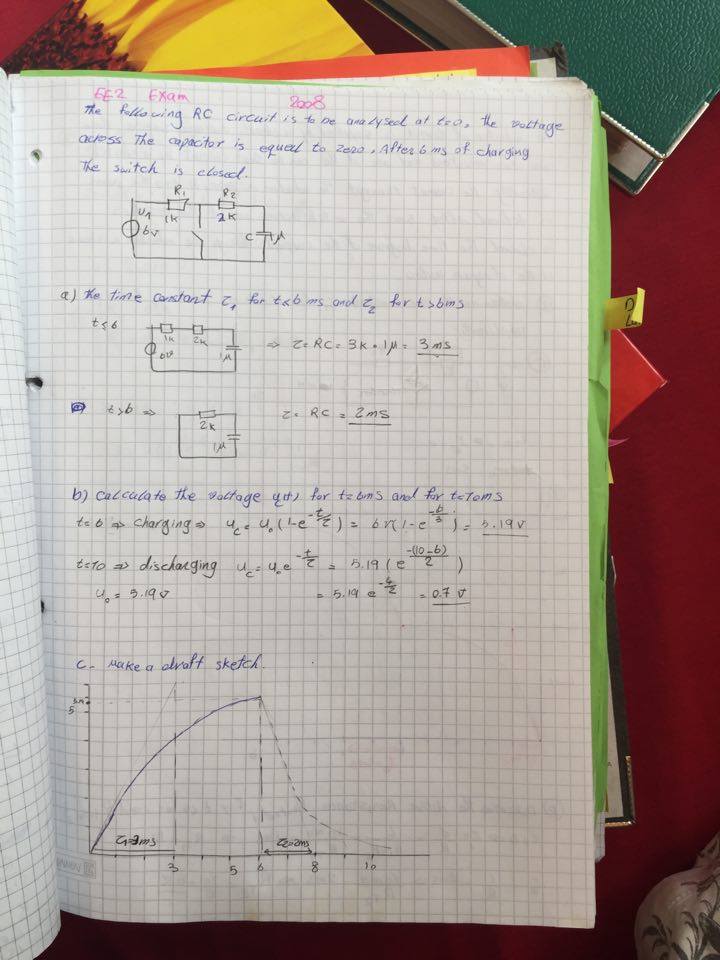 EE2 Exam 2008
The following RC circuit is to be analysed at t=0, the voltage
across The capacitor is equal to zero. After 6 ms of charging
The switch is closed.
R1 R2
U1 1k 2k
6v C 1μ
a) the time constant τ1 for t<6 ms and τ2 for t>6ms
t≤6 1k 2k 6v 1μ ⇒ τ=RC=3k•1μ=3ms
t>6 ⇒ 2k 1μ τ= RC = 2ms
b) calculate the voltage u(t) for t=6ms and for t=10ms
t=6 ⇒ charging ⇒ uc = u0(1-e^-t/τ) = 6v(1-e^-6/3) = 5.19v
t=10 ⇒ discharging uc = u0 e^-t/τ = 5.19(e^-(10-6)/2)
u0 = 5.19v = 5.19 e^-4/2 = 0.7 v
c- Make a draft sketch.
5.19
5
τ1=3ms τ2=2ms
3 5 6 8 10